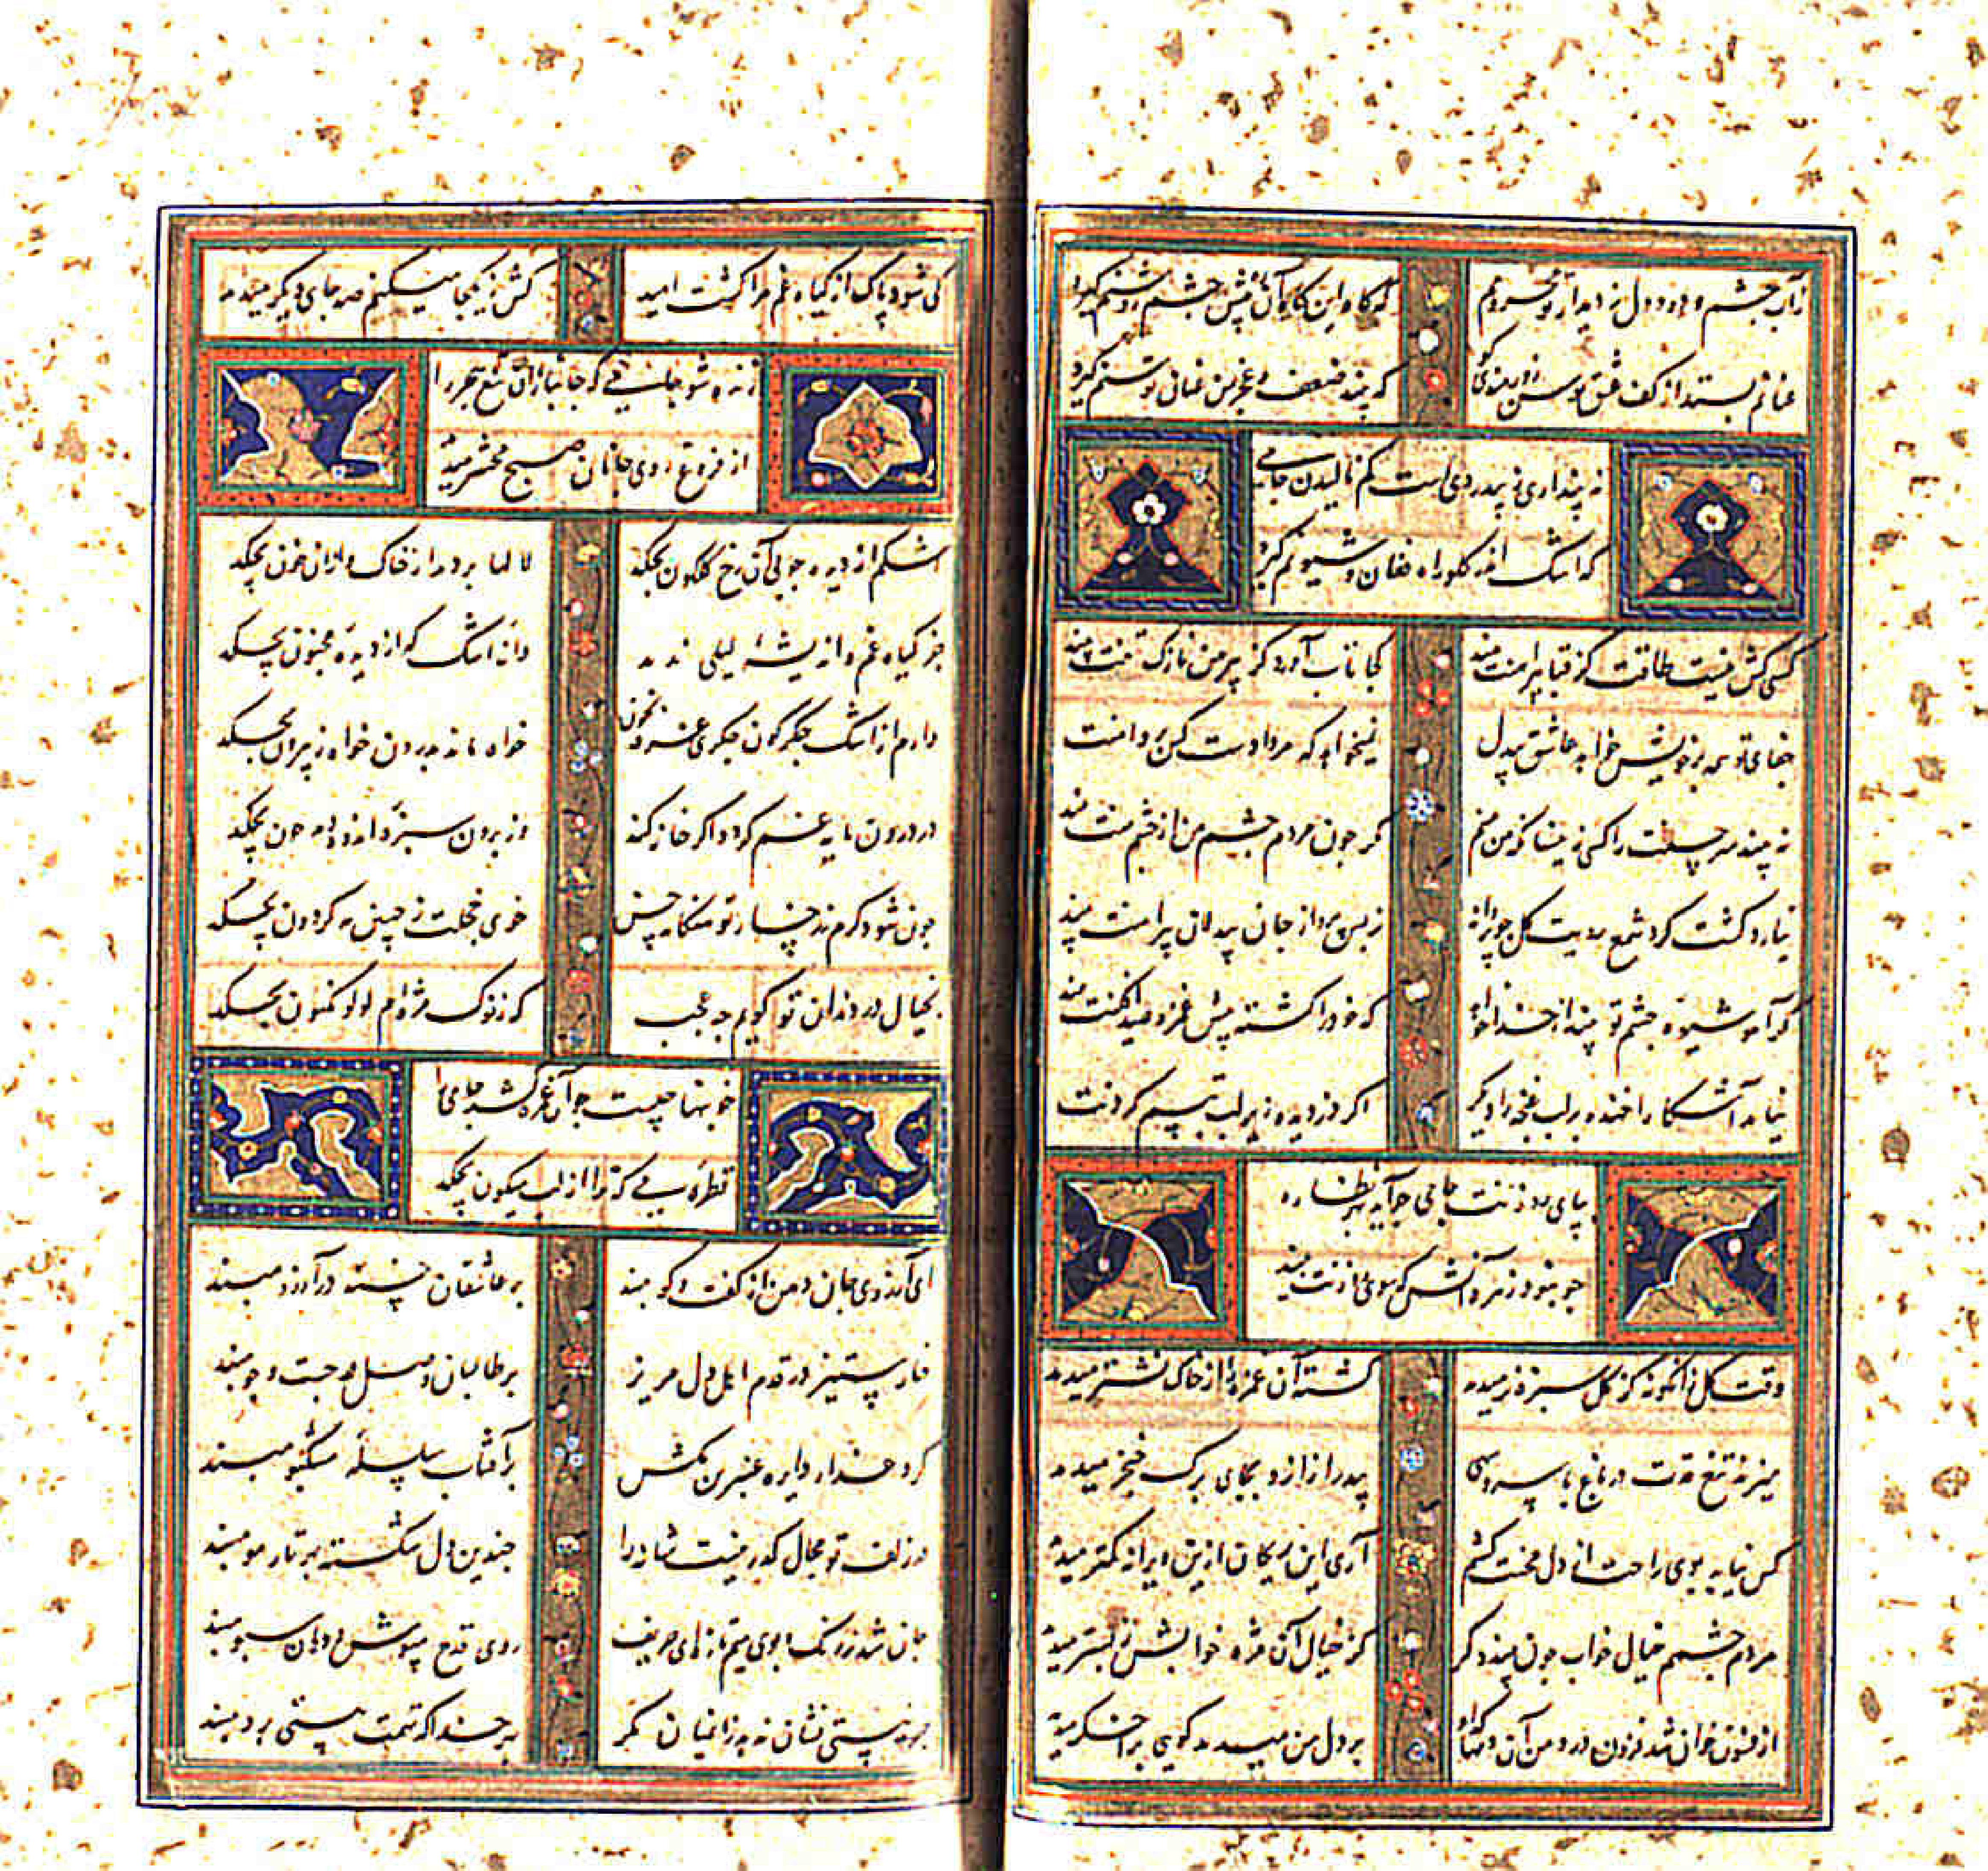 ز آب چشم و دود دل ز دیدار تو محرومم
که گاه این گاه آن پیش چشم روشنم گیرد
عنانم بستد از کف عشق
که چند ضعف و عجز من عنان توسنم گیرد
نه پنداری ز بیدردی است کم نالیدن جامی
که اشک اندر گلو راه فغان و شیونم گیرد
کسی کش نیست طاقت کز قبا پیراهنت بیند
کجا تاب آورد کز پیرهن نازک تنت بیند
جفای تو همه بر خویش خواهد عاشق بیدل
نمیخواهد که مرد او دست کس بر دامنت
نه بیند سر چشمت را کسی زینسان که من بینم
مگر چون مردم چشم من از چشم منت بیند
نیارد گشت گرد شمع رویت گل چو پروانه
ز بس پرواز جان بیدلان پیرامنت بیند
گر آهو شیوه چشم تو بیند از خدا خواهد
که خود را کشته پیش غمزه صید افکنت بیند
نیاید آشکارا خنده بر لب غنچه را دیگر
اگر دزدیده زیر لب تبسم کردنت
بپای روزنت جامی چو آید بهر نظاره
چو نبود زهره آنش که سوی روزنت بیند
وقت گل زانگونه کز گل سبزه تر میدمد
کشته آن غمزه را از خاک نشتر میدمد
میزند تیغ قدت در باغ با سرو سهی
بید را زانرو بجای برگ خنجر میدمد
کس نیابد بوی راحت از دل محنت کشم
آری این ریحان ازین ویرانه کمتر میدمد
مردم چشمم خیال خواب چون بیند دگر
کز خیال آن مژه خوابش ز بستر میدمد
از فسون خوان شد فزون درد من آن دمها
بر دل من میدمد گویی بر اخگر میدمد
کی شود پاک از گیاه غم مرا کشت امید
کش ز یکجا میکنم صد جای دیگر میدمد
زنده شو جامی که جانبازان تیغ هجر را
از فروغ روی جانان صبح محشر میدمد
اشکم از دیده چو بی آن رخ گلگون بچکد
لالها بر دمد از خاک و ازان خون بچکد
جز گیاه غم و اندیشه لیلی ندمد
دانه اشک که از دیده مجنون بچکد
دارم از اشک جگرگون جگری غرقه بخون
خواه ماند بدرون خواه ز بیرون بچکد
در درون مایه غم گردد اگر خانه کند
وز برون سبزه اندوه دمد چون بچکد
چون شود گرم ز رخسار تو هنگامه حسن
خوی خجلت ز جبین مه گردون بچکد
بخیال در دندان تو گویم چه عجب
که ز نوک مژه‌ام لولو مکنون بچکد
خونبها چیست چو آن غمزه کشد جامی را
قطره‌ می که ترا از لب میگون بچکد
ای آرزوی جان دهن از گفت و گو مبند
بر عاشقان خسته در آرزو مبند
خار ستیز در قدم اهل دل مریز
بر طالبان وصل ره جست و جو مبند
گرد عذار دایره عنبرین مکش
بر آفتاب سلسله مشکبو مبند
در زلف تو مجال گذر نیست شانه را
چندین دل شکسته بهر تار مو مبند
جان شد ز رنگ و بوی میم تازه‌ای حریف
روی قدح مپوش و دهان سبو مبند
چون نیستی نشان ندهد زانمیان کمر
بر چند اگر تهمت هستی برو مبند